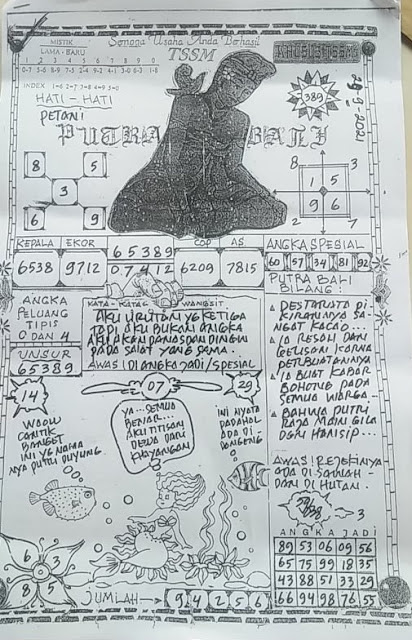 MISTIK
LAMA - BARU
Semoga Usaha Anda Berhasil
TSSM
1 2 3 4 5 6 7 8 9 0
INDEX
HATI - HATI
PETANI
PUTRA BALI
389
29-9-2021
8 5
3
6 9
3 8
1 5
9 6
2 7
KEPALA EKOR
6538 9712
65389
07412
COP AS
6209 7815
ANGKA SPESIAL
60 57 34 81 92
PUTRA BALI
BILANG :
ANGKA
PELUANG
TIPIS
0 DAN 4
UNSUR
65389
KATA - KATA WANGSIT
AKU URUTAN YG KETIGA
TAPI AKU BUKAN ANGKA
AKU AKAN PANAS DAN DINGIN
PADA SAAT YANG SAMA.
AWAS! DI ANGKA JADI/SPESIAL
DESTARASTA DI-
KIRANNYA SA-
NGAT KACAO...
IA RESAH DAN
GELISAH KARNA
PERBUATANNYA
IA BUAT KABAR
BOHONG PADA
SEMUA WARGA.
BAHWA PUTRI
RAJA MAIN GILA
DGN HANSIP...
14
07
29
WAOW
CANTIK
BANGET
INI YG NAMA
NYA PUTRI DUYUNG
YA... SEMUA
BENAR...
AKU TITISAN
DEWA DARI
KAYANGAN
INI NYATA
PADAHAL
ADA DI
DONGENG
AWAS! REJEKINYA
ADA DI SAWAH
DAN DI HUTAN.
3
6 3
8 5
JUMLAH → 9 4 2 5 6
ANGKA JADI
89 53 06 09 56
65 75 99 18 35
43 88 51 33 29
66 94 98 76 55